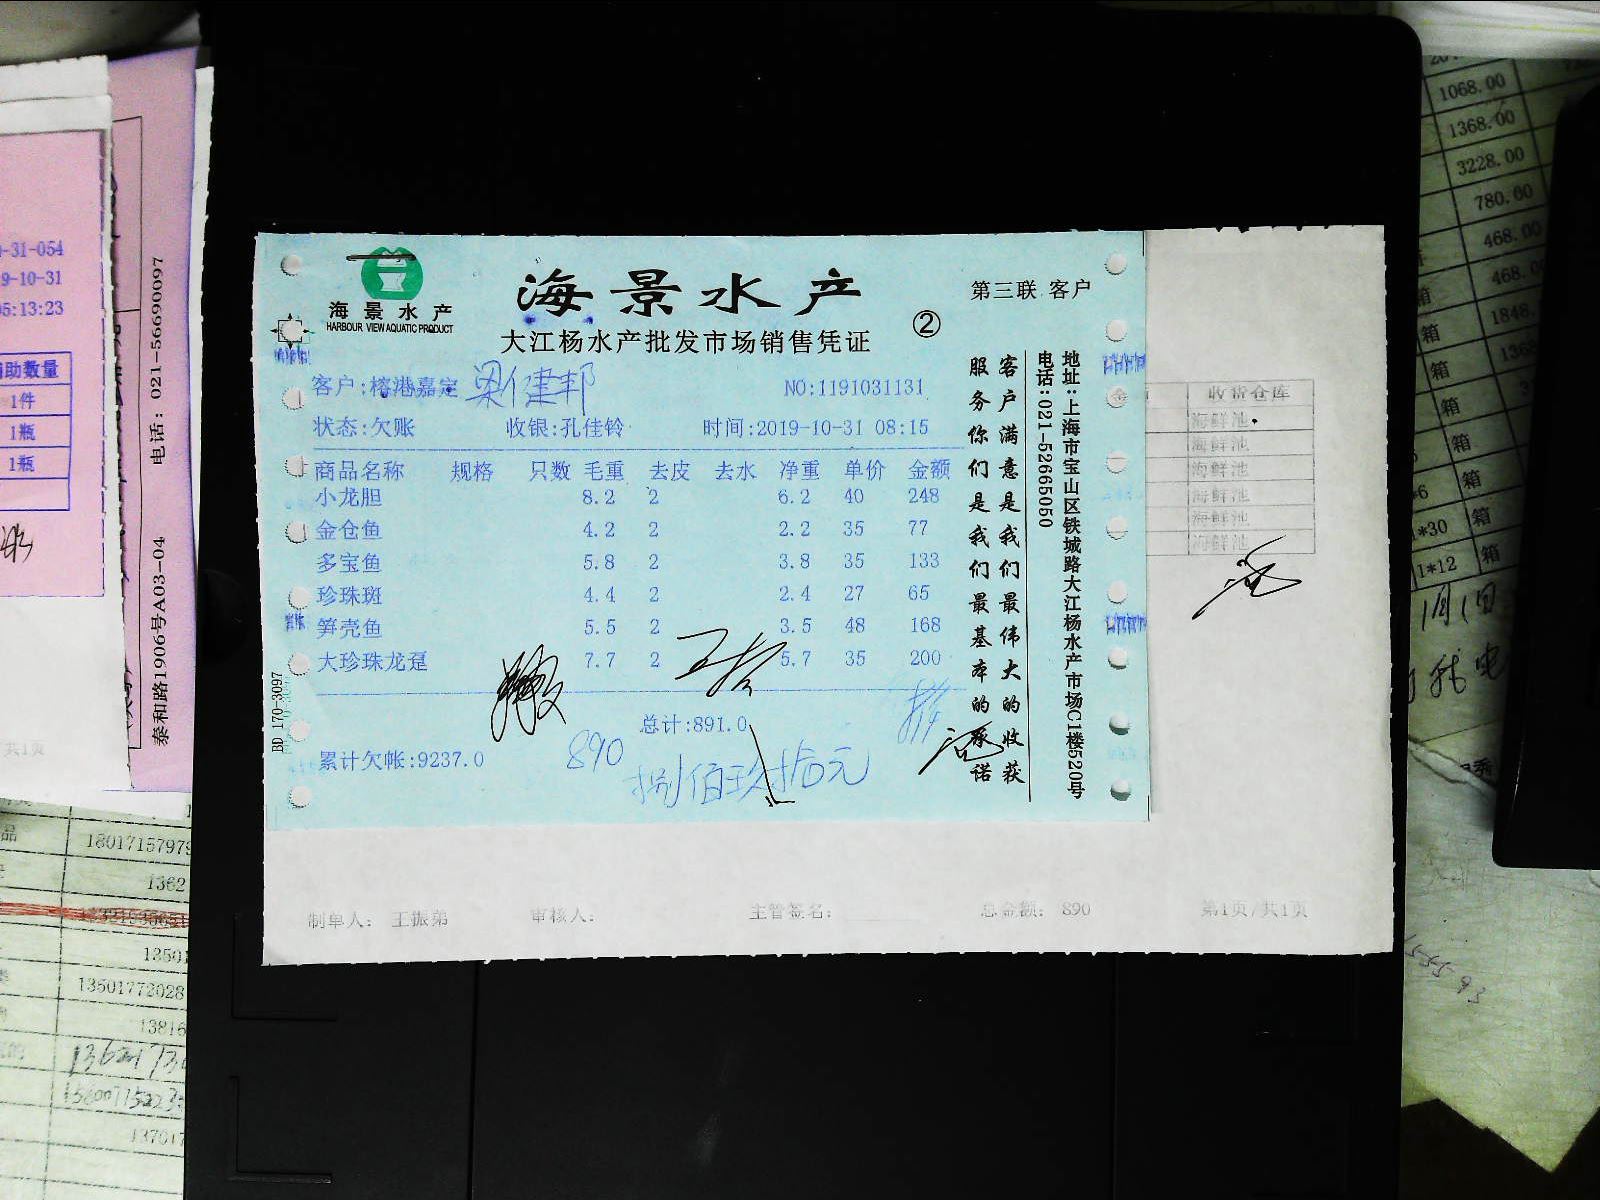 海景水产
HARBOUR VIEW AQUATIC PRODUCT
海景水产
大江杨水产批发市场销售凭证
②
第三联 客户
客户:榕港嘉定 梁健邦
NO:1191031131
状态:欠账 收银:孔佳铃 时间:2019-10-31 08:15
商品名称 规格 只数 毛重 去皮 去水 净重 单价 金额
小龙胆 8.2 2 6.2 40 248
金仓鱼 4.2 2 2.2 35 77
多宝鱼 5.8 2 3.8 35 133
珍珠斑 4.4 2 2.4 27 65
笋壳鱼 5.5 2 3.5 48 168
大珍珠龙趸 7.7 2 5.7 35 200
总计:891.0
累计欠帐:9237.0
890
捌佰玖拾元
客户满意是我们最伟大的收获
服务你们是我们最基本的承诺
地址:上海市宝山区铁城路大江杨水产市场C1楼520号
电话:021-52665050
BD 170-3097
收货仓库
海鲜池
海鲜池
海鲜池
海鲜池
海鲜池
海鲜池
制单人: 王振弟 审核人: 主管签名: 总金额: 890 第1页/共1页
-31-054
9-10-31
05:13:23
助数量
1件
1瓶
1瓶
共1页
泰和路1906号A03-04 电话: 021-56690097
品
1801715797
1362
13501
13501772028
13816
13701
1068.00
1368.00
3228.00
780.00
468.00
468.
1848.
箱
箱
箱
箱
箱
*6 箱
1*30 箱
1*12 箱
1月1日